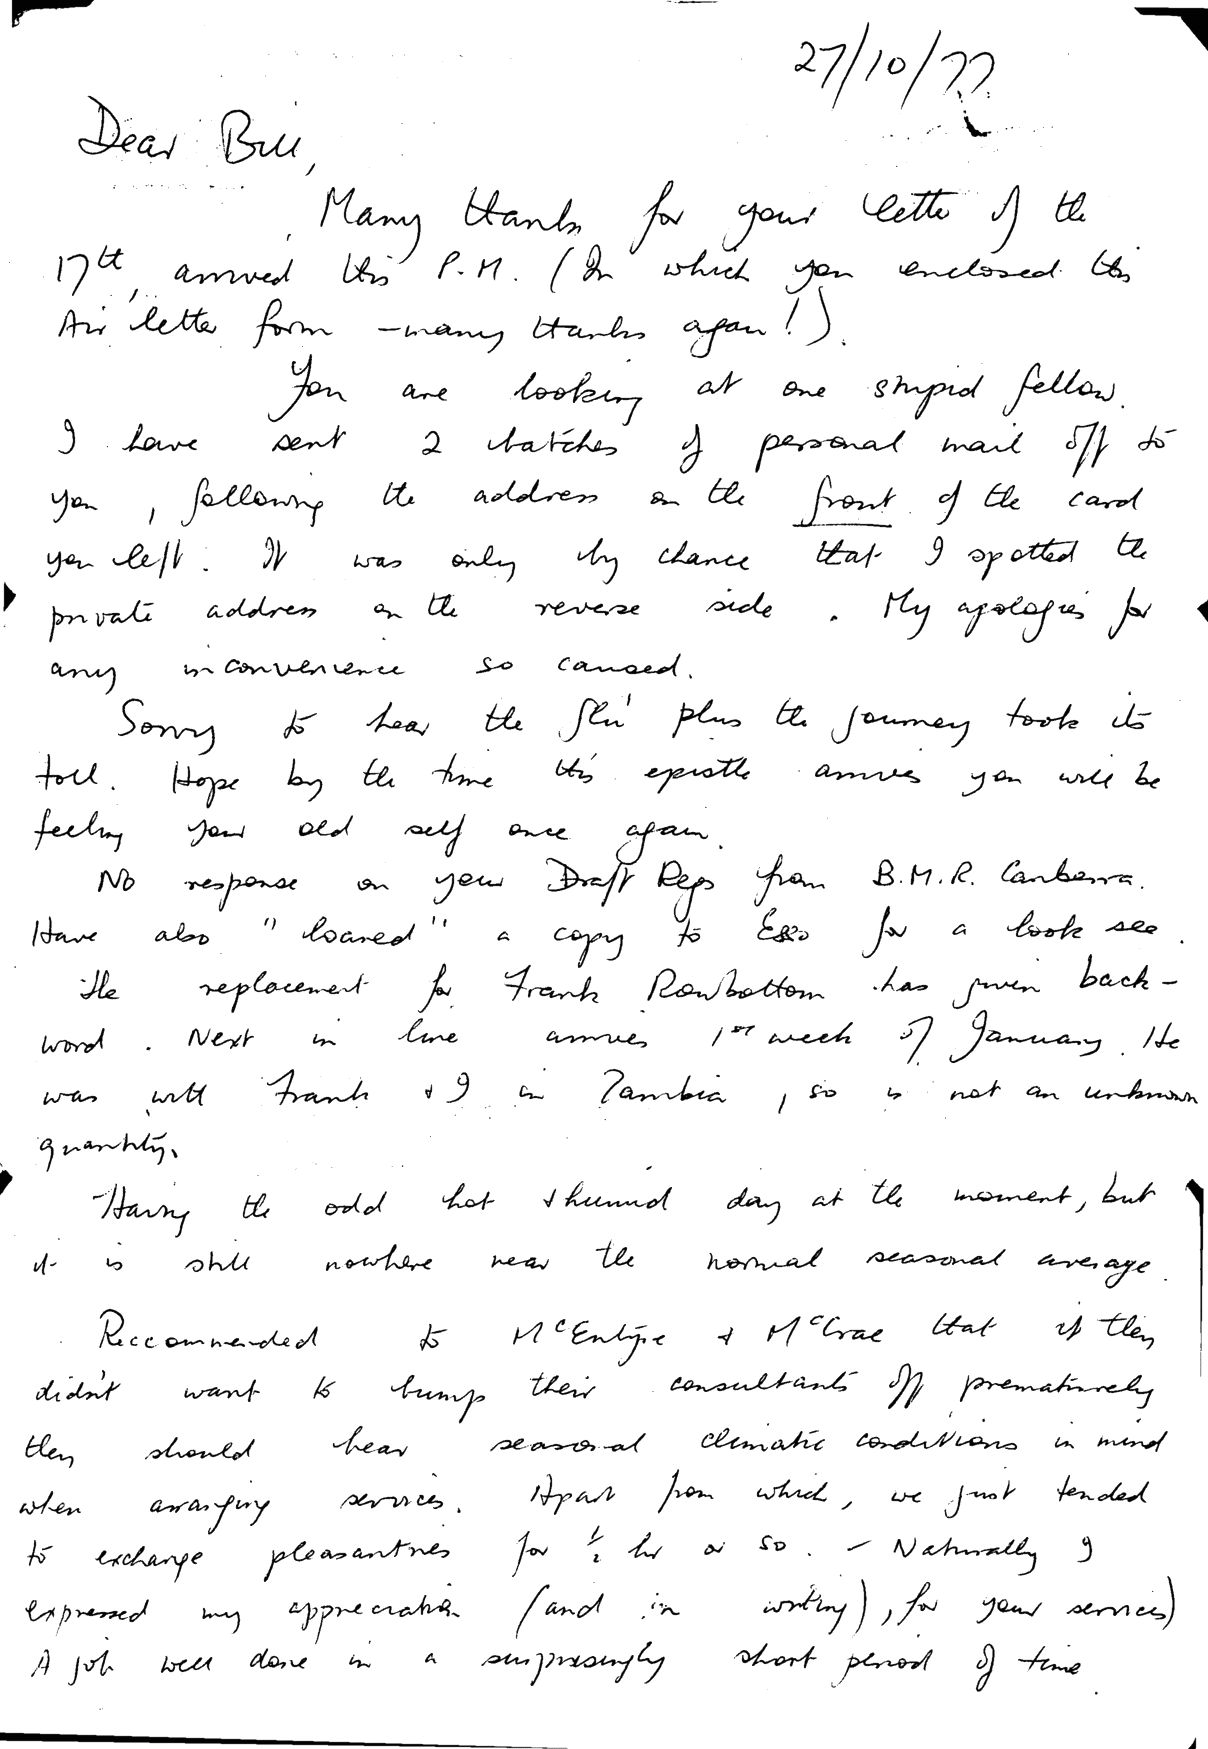 27/10/77
Dear Bill,
Many thanks for your letter of the
17th, arrived this P.M. (In which you enclosed this
Air letter form - many thanks again!).
You are looking at one stupid fellow.
I have sent 2 batches of personal mail off to
you, following the address on the front of the card
you left. It was only by chance that I spotted the
private address on the reverse side. My apologies for
any inconvenience so caused.
Sorry to hear the flu' plus the journey took its
toll. Hope by the time this epistle arrives you will be
feeling your old self once again.
No response on your Draft Regs from B.M.R. Canberra.
Have also "loaned" a copy to Esso for a look see.
The replacement for Frank Rowbottom has given back-
word. Next in line arrives 1st week of January. He
was with Frank & I in Zambia, so is not an unknown
quantity.
Having the odd hot & humid day at the moment, but
it is still nowhere near the normal seasonal average.
Reccommended to McEntyre & McCrae that if they
didn't want to bump their consultants off prematurely
they should bear seasonal climatic conditions in mind
when arranging services. Apart from which, we just tended
to exchange pleasantries for 1/2 hr or so. - Naturally I
expressed my appreciation (and in writing), for your services)
A job well done in a surprisingly short period of time.